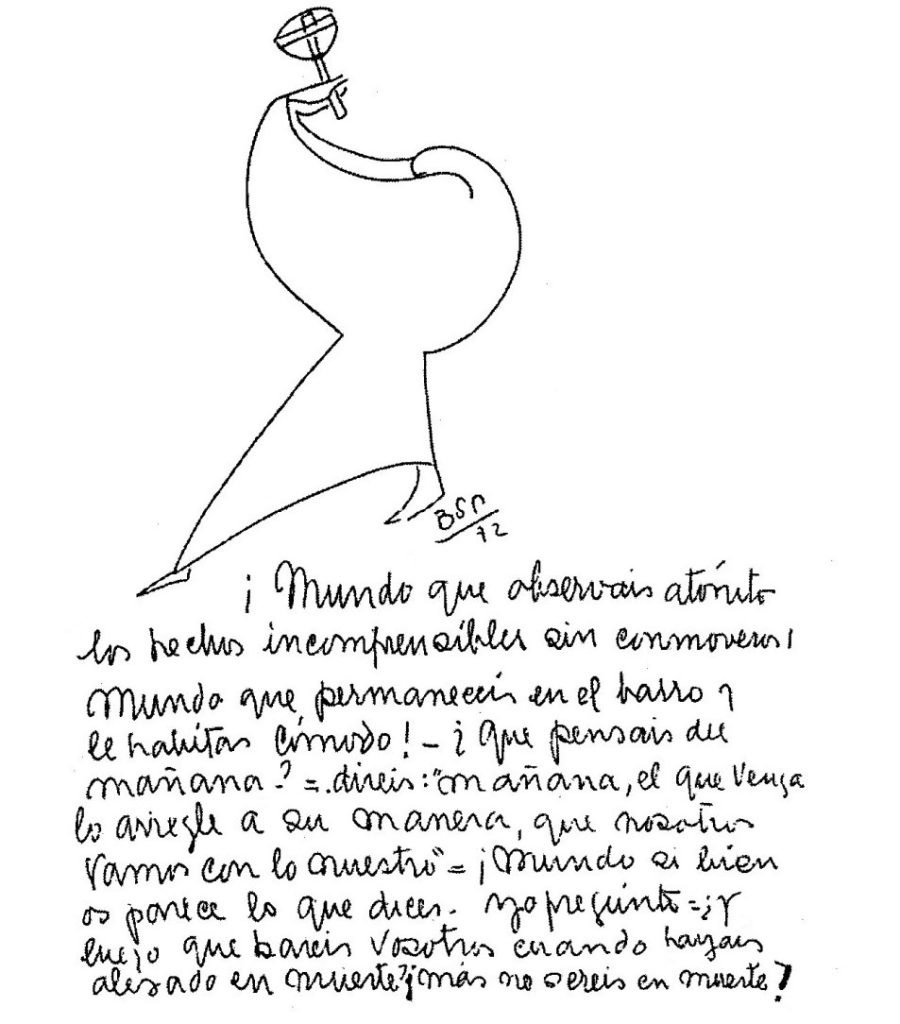 BSM
72
¡Mundo que observais atónito
los hechos incomprensibles sin conmoveros!
Mundo que permaneceis en el barro y
le habitas cómodo! - ¿Que pensais del
mañana? =. direis: "mañana, el que venga
lo arregle a su manera, que nosotros
vamos con lo nuestro" = ¡Mundo si bien
os parece lo que dices. yo pregunto = ¿Y
luego que hareis vosotros cuando hayais
en muerte? ¡más no sereis en muerte?